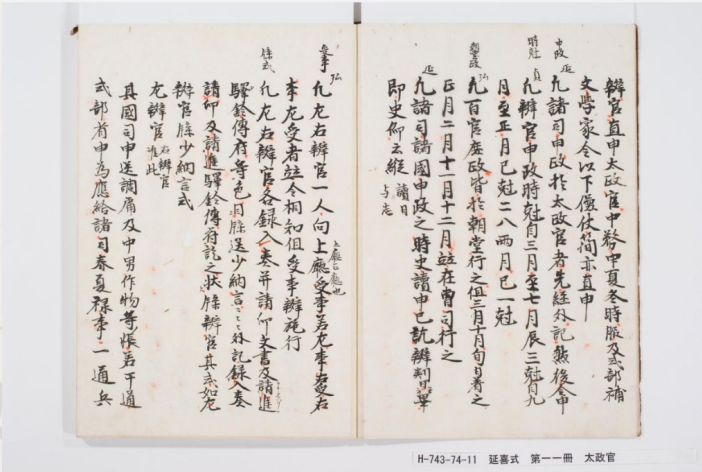 辨官直申太政官中務中夏冬時服及式部補
文学家令以下儀仗等亦直申
中政 延
凡諸司申政於太政官者先経外記然後令申
時剋 貞
凡辨官申政時剋自三月至七月辰三剋自九
月至正月巳剋二八両月巳一剋
朝堂政 弘
凡百官庶政皆於朝堂行之但三月十月旬日着之
正月二月十一月十二月並在曹司行之
延
凡諸司諸国申政之時史読申已訖辨判
即史仰云縦 読曰
弘
凡左右辨官一人向上廳受事若左事右受右
事左受者並令相知但受事辨施行
凡左右辨官各録入奏并請印文書及請進
驛鈴傳符等色目牒送少納言々々外記録入奏
請印及請進驛鈴傳符訖之状牒辨官其式如左
辨官牒少納言式
左辨官 右辨官准此
其国司申送調庸及中男作物等帳若干通
式部省申為應給諸司春夏禄事一通兵
H-743-74-11 延喜式 第一一冊 太政官